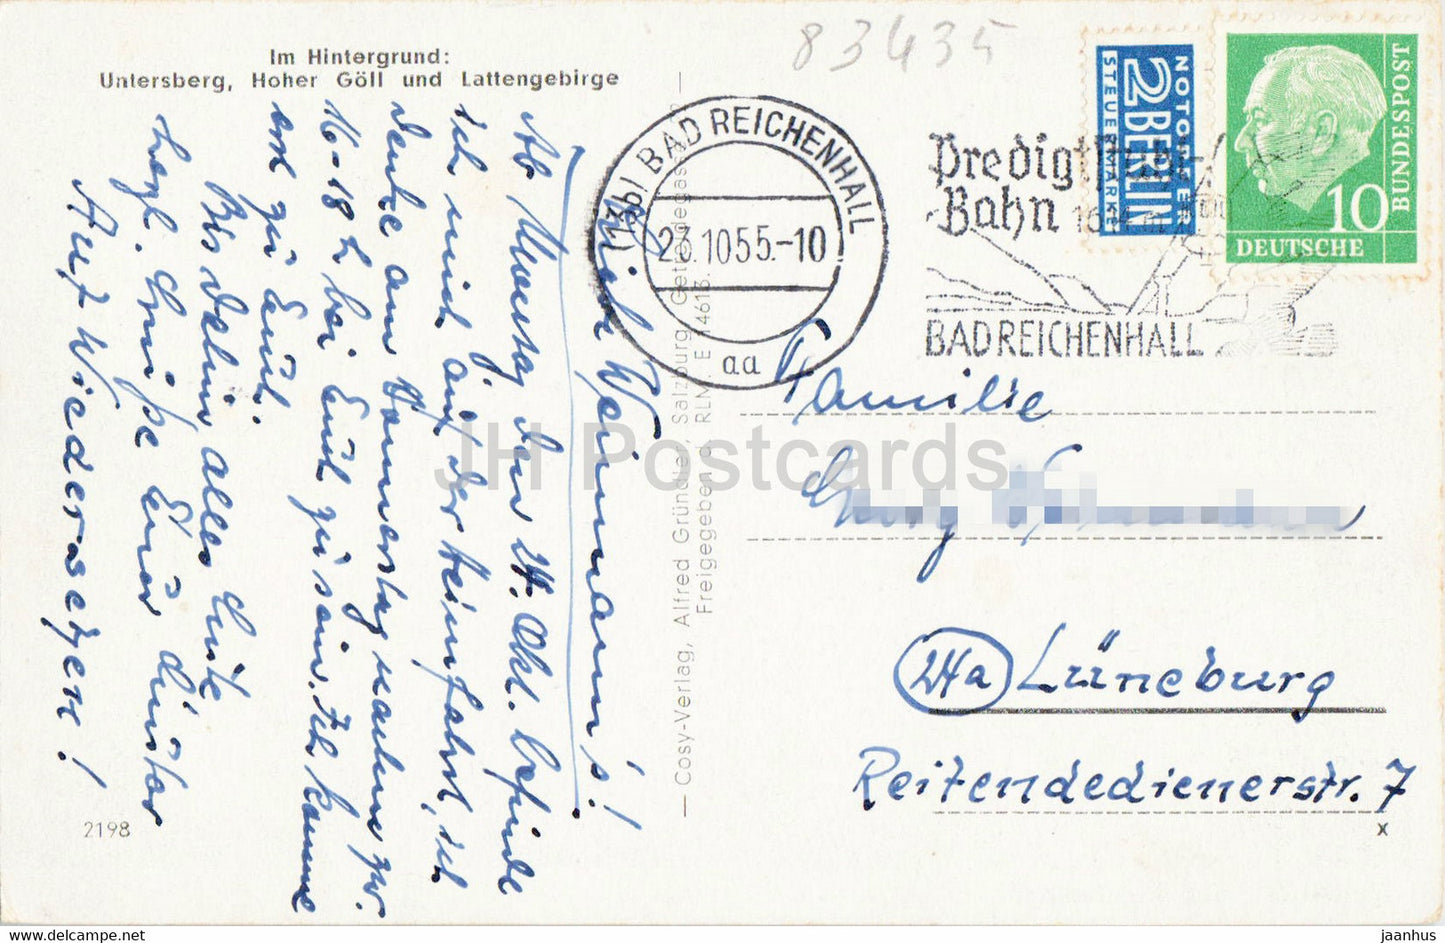 83435
Im Hintergrund:
Untersberg, Hoher Göll und Lattengebirge
(13b) BAD REICHENHALL
23.10.55.-10
aa
Predigtstuhl-
Bahn
BAD REICHENHALL
NOTOPFER
2 BERLIN
STEUERMARKE
DEUTSCHE
BUNDESPOST
10
Liebe Weinmann's!
Ab Montag den 24. Okt. befinde
ich mich auf der Heimfahrt, ich
denke am Donnerstag machm zw.
16-18 h bei Euch zu sein. Ich komme
erst zu Euch.
Bis dahin alles Gute
herzl. Grüße Euer Günter
Auf Wiedersehen!
2198
Cosy-Verlag, Alfred Gründler, Salzburg, Getreidegasse
Freigegeben d. RLM. E 14613
Familie
Georg
24a Lüneburg
Reitendedienerstr. 7
x
JH Postcards
www.delcampe.net
jaanhus